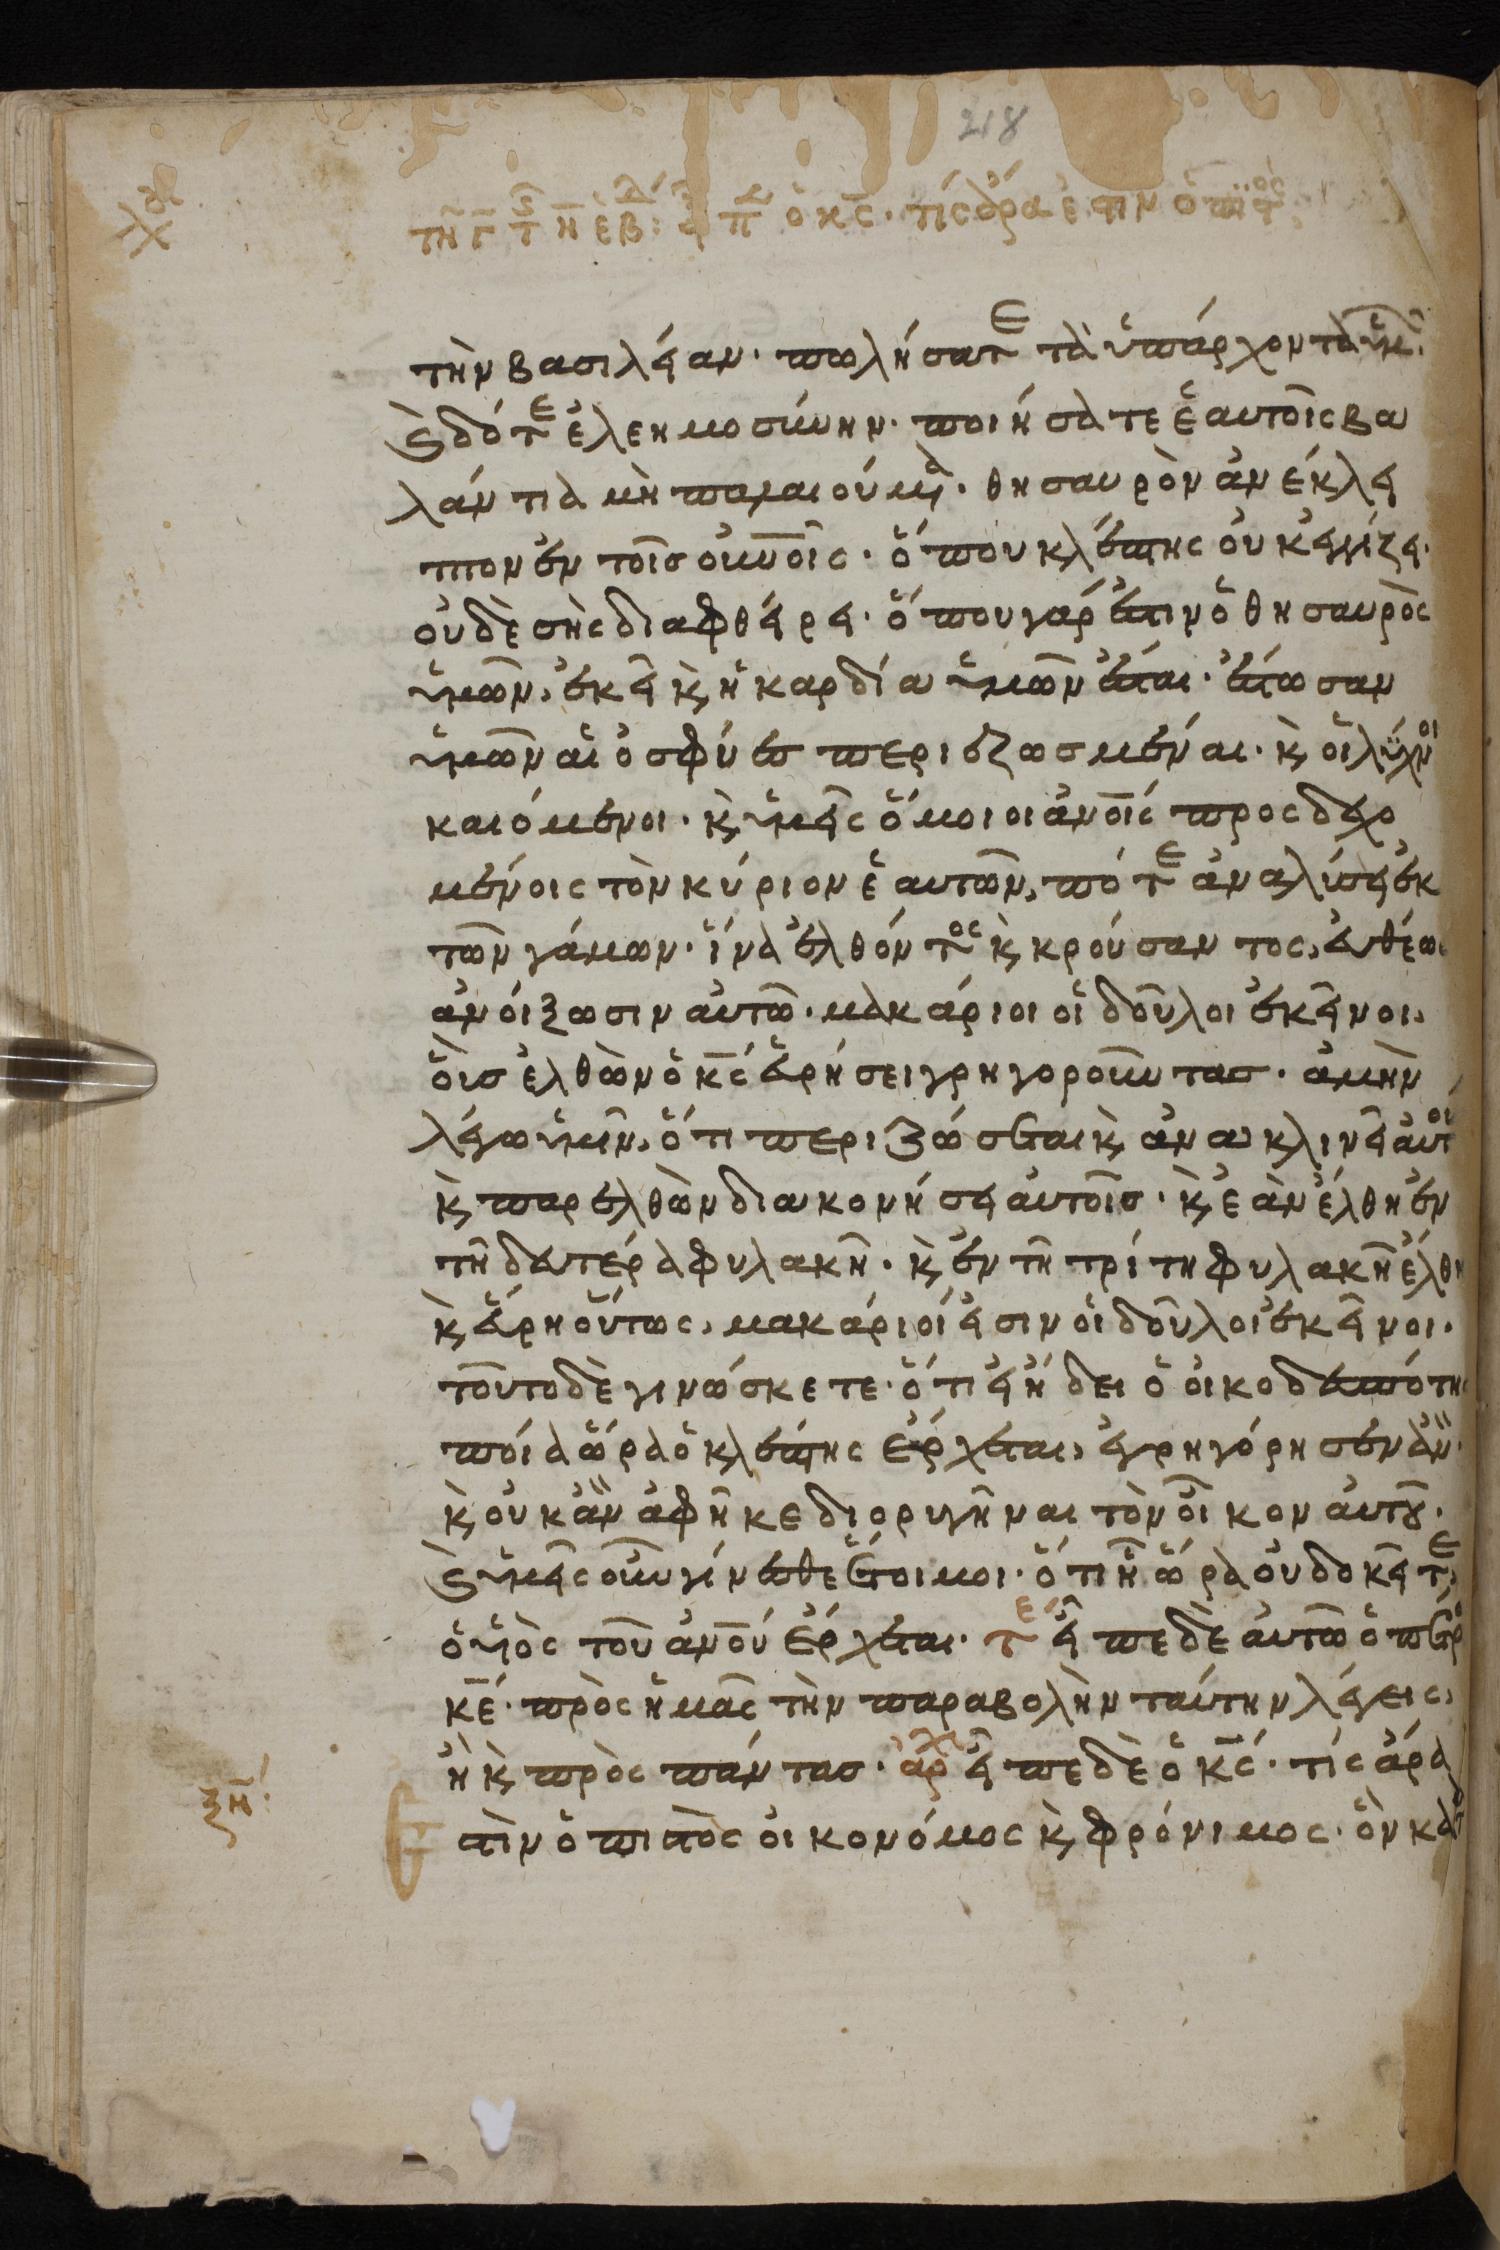 218
τῆ γ τ η ἑβ: εἶπ ὁ κς· τίς ἄρα ἐστιν ὁ πιστος
τὴν βασιλείαν· πωλήσατε τὰ ὑπάρχοντα ὑμ
καὶ δότε ἐλεημοσύνην· ποιήσατε ἑαυτοῖς βα
λάντια μὴ παλαιούμενα· θησαυρὸν ἀνέκλει
πτον ἐν τοῖσ οὐνοῖς· ὅπου κλέπτης οὐκ ἐγγίζει·
οὐδὲ σὴς διαφθείρει· ὅπου γάρ ἐστιν ὁ θησαυρὸς
ὑμῶν, ἐκεῖ κ ἡ καρδία ὑμῶν ἔσται· ἔστωσαν
ὑμῶν αἱ ὀσφύες περιεζωσμέναι· κ οἱ λύχνοι
καιόμενοι· κ ὑμεῖς ὅμοιοι ἀνοῖς προσδεχο
μένοις τὸν κύριον ἑαυτῶν, πότε ἀναλύσει ἐκ
τῶν γάμων· ἵνα ἐλθόντος κ κρούσαντος, εὐθέως
ἀνοίξωσιν αὐτῶ· μακάριοι οἱ δοῦλοι ἐκεῖνοι,
οὓσ ἐλθὼν ὁ κς εὑρήσει γρηγοροῦντασ· ἀμὴν
λέγω ὑμῖν, ὅτι περιζώσεται κ ἀνακλινεῖ αὐτοὺ
κ παρελθὼν διακονήσει αὐτοῖσ· κ ἐὰν ἔλθη ἐν
τῆ δευτέρα φυλακῆ· κ ἐν τῆ τρίτη φυλακῆ ἔλθη
κ εὕρη οὕτως, μακάριοί εἰσιν οἱ δοῦλοι ἐκεῖνοι·
τοῦτο δὲ γινώσκετε· ὅτι εἰ ἤδει ὁ οἰκοδεσπότης
ποία ὥρα ὁ κλέπτης ἔρχεται, ἐγρηγόρησεν ἂν·
κ οὐκ ἂν ἀφῆκε διορυγῆναι τὸν οἶκον αὐτοῦ·
καὶ ὑμεῖς οὖν γίνεσθε ἕτοιμοι· ὅτι ἧ ὥρα οὐ δοκεῖτε,
ὁ υἱὸς τοῦ ἀνοῦ ἔρχεται· τε εἶπε δὲ αὐτῶ ὁ πετρο
κε· πρὸς ἡμᾶς τὴν παραβολὴν ταύτην λέγεις,
ἢ κ πρὸς πάντασ· ἀρχ εἶπε δὲ ὁ κς· τίς ἄρα
ξη
ἐστὶν ὁ πιστὸς οἰκονόμος κ φρόνιμος· ὃν κατ